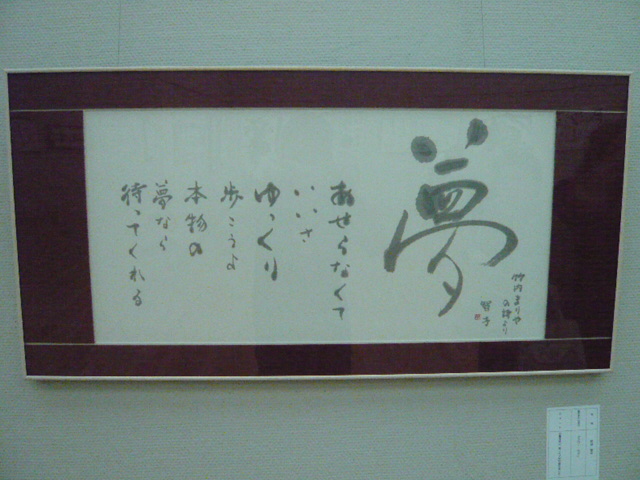 夢
竹内まりや
の詩より
智子
あせらなくて
いいさ
ゆっくり
歩こうよ
本物の
夢なら
待ってくれる